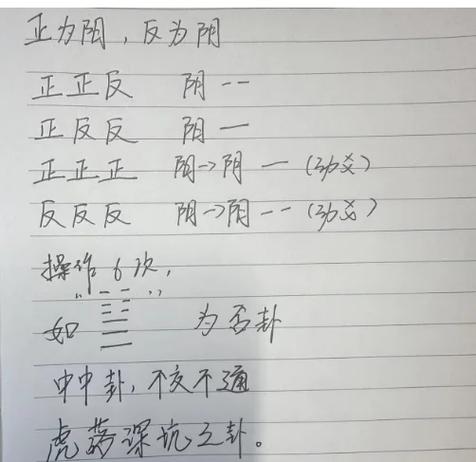 正为阳，反为阴
正正反 阴 --
正反反 阳 —
正正正 阳→阴 — (动爻)
反反反 阴→阳 -- (动爻)
操作6次，
如 “䷊” 为否卦
中中卦，不交不通
虎落深坑之卦。